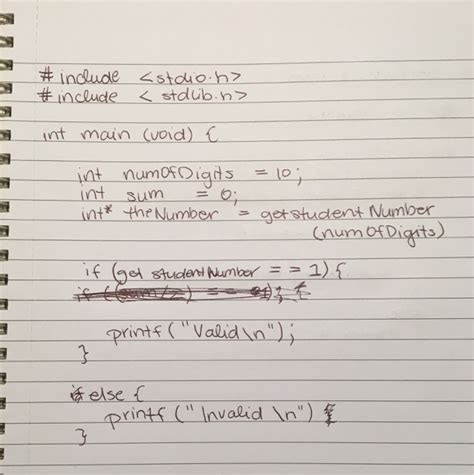 #include <stdio.h>
#include <stdlib.h>
int main (void) {
int numOfDigits = 10;
int sum = 0;
int* theNumber = getstudentNumber
(numOfDigits)
if (get studentNumber == 1) {
printf("Valid\n");
}
else {
printf ("Invalid \n")
}